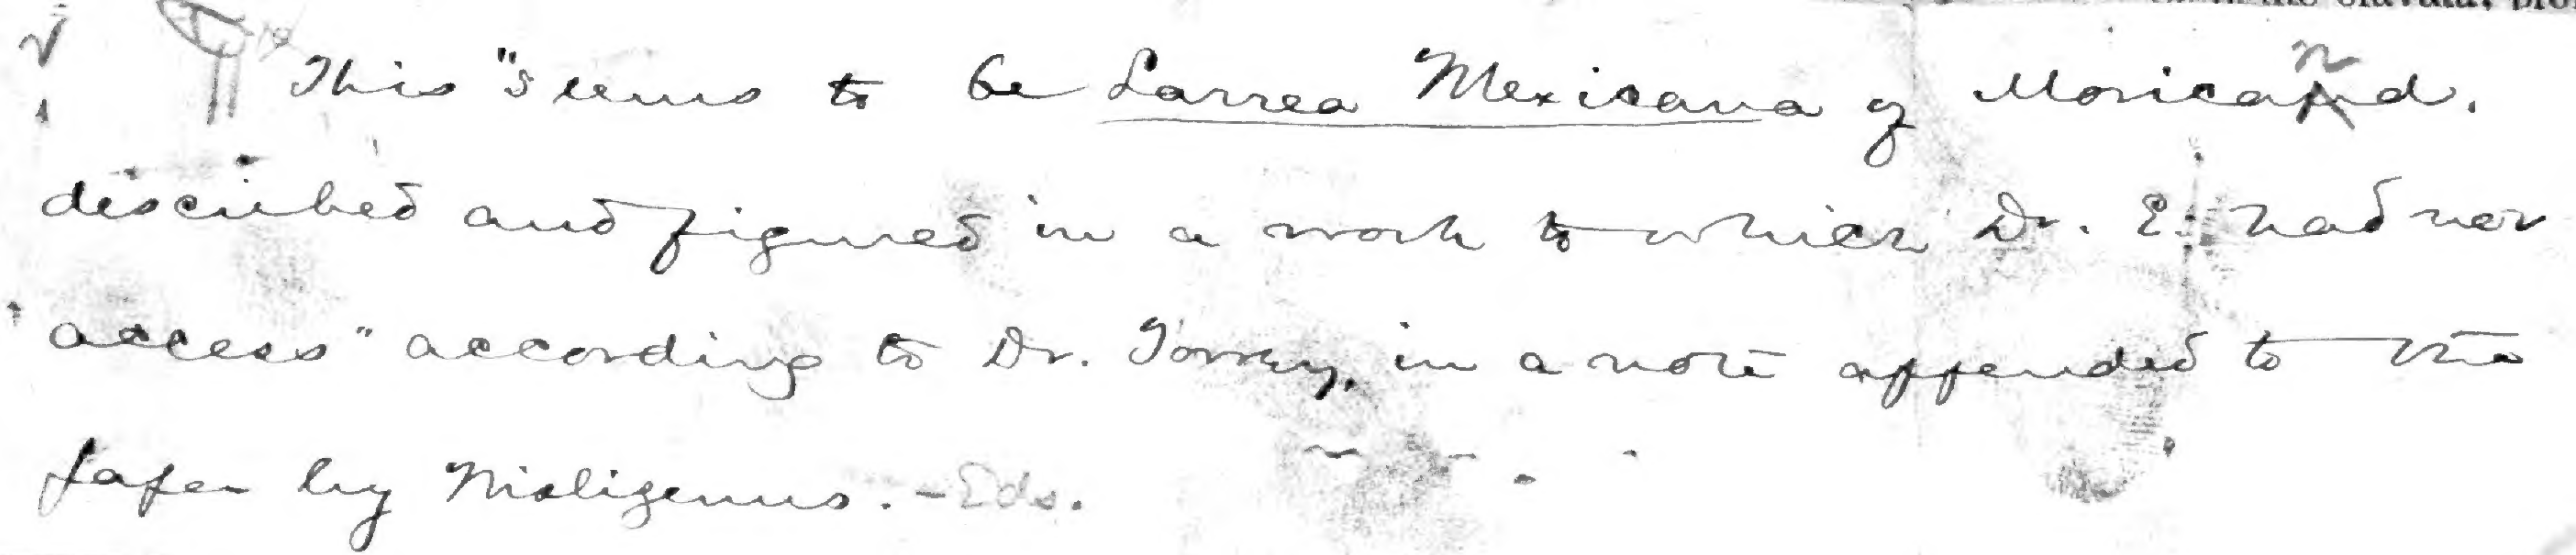 This "seems to be Larrea Mexicana of Moricand.
described and figured in a work to which Dr. E. had not
access" according to Dr. Torrey, in a note appended to the
paper by Wislizenus. - Eds.